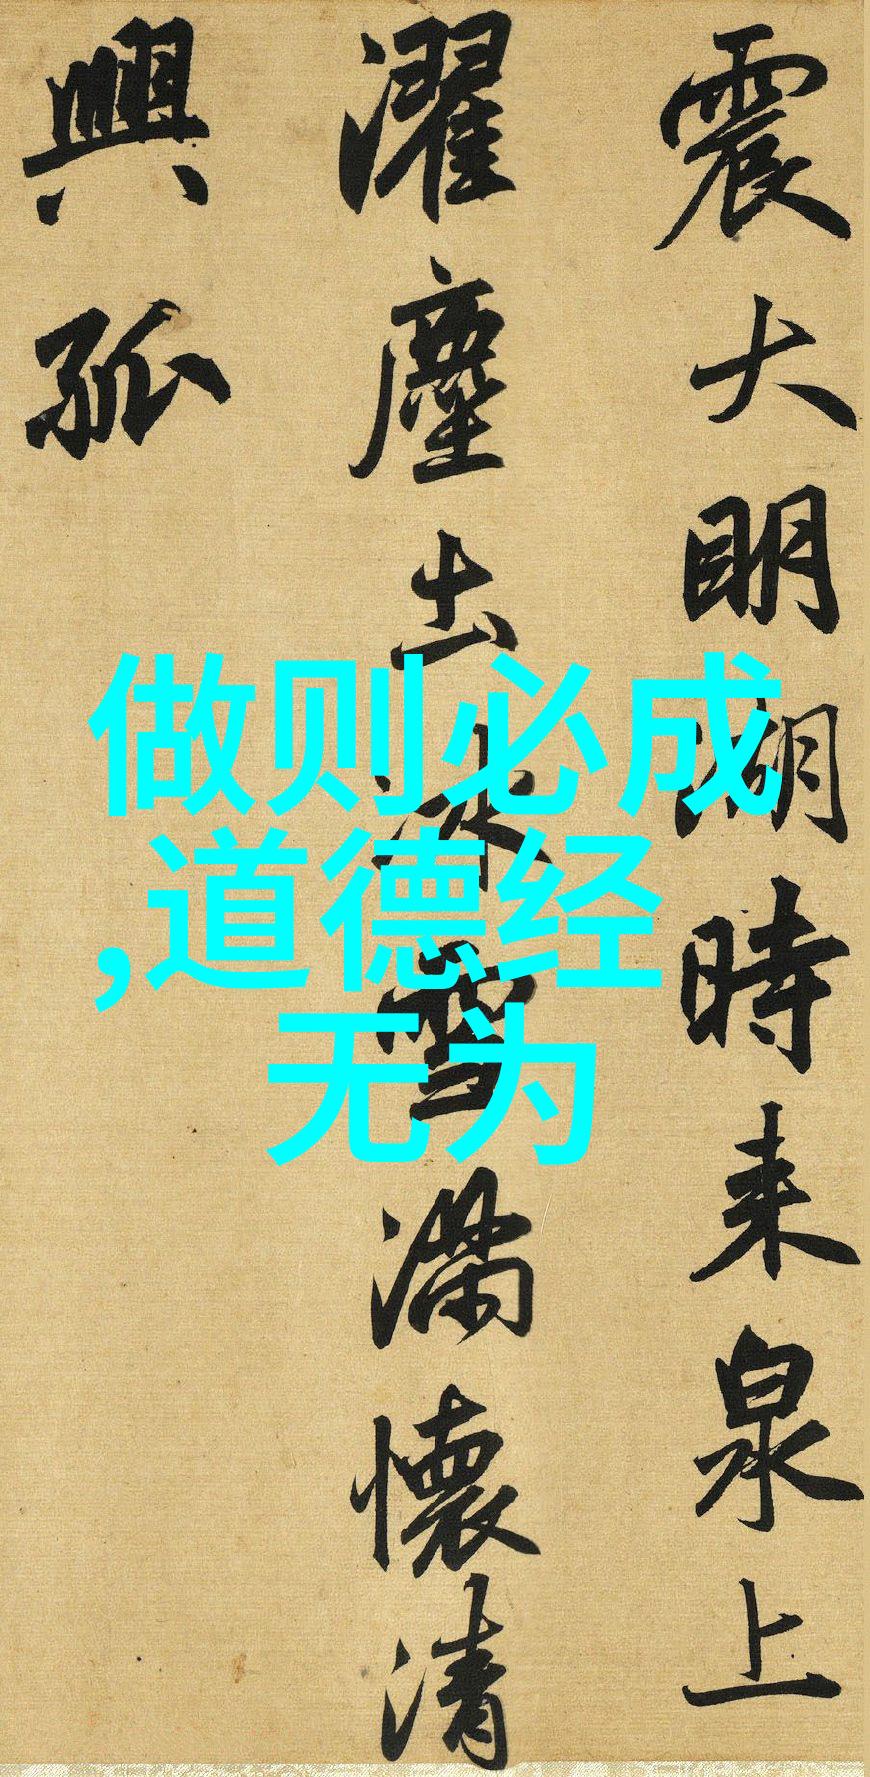 震大明湖時来泉上
濯塵土冰雪滿懷清
興孤
做则必成
,道德经
无为